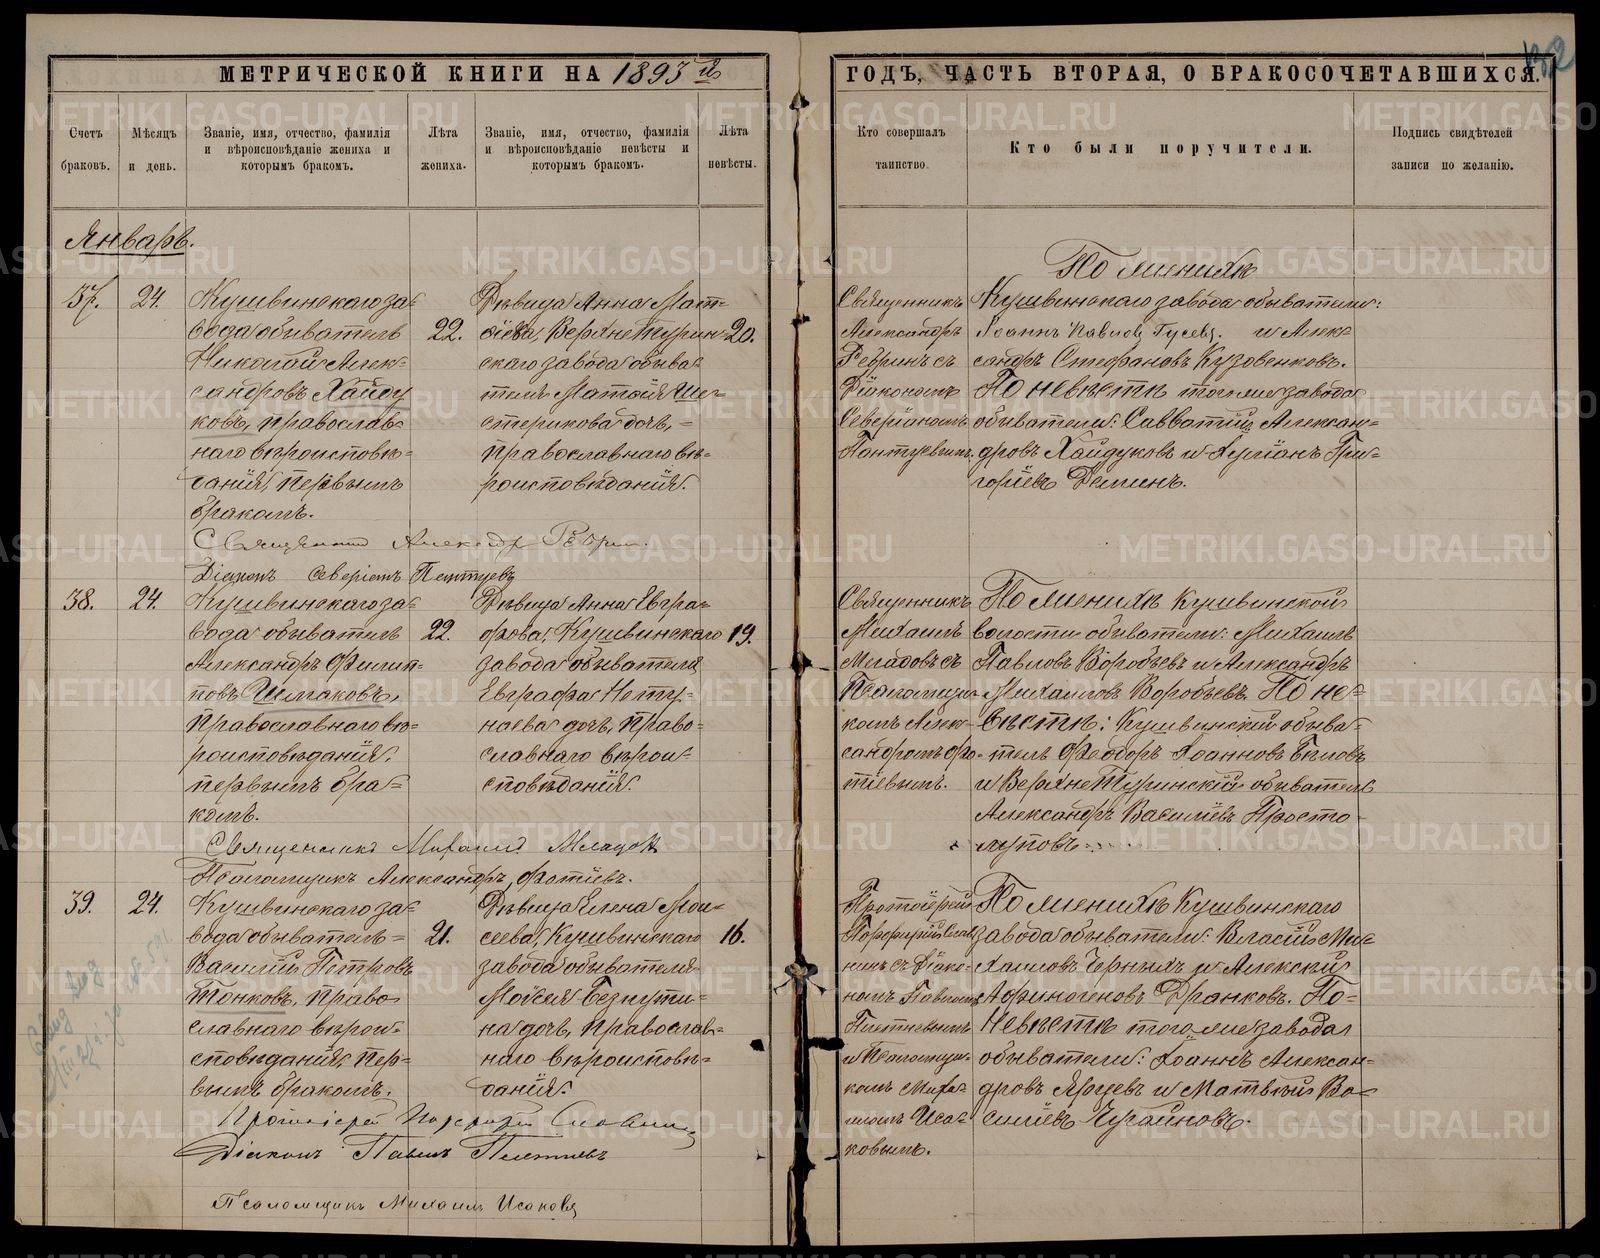 МЕТРИЧЕСКОЙ КНИГИ НА 1893 й
ГОДЪ, ЧАСТЬ ВТОРАЯ, О БРАКОСОЧЕТАВШИХСЯ.
Счетъ браковъ.
Мѣсяцъ и день.
Званіе, имя, отчество, фамилія
и вѣроисповѣданіе жениха и
которымъ бракомъ.
Лѣта
жениха.
Званіе, имя, отчество, фамилія
и вѣроисповѣданіе невѣсты и
которымъ бракомъ.
Лѣта
невѣсты.
Кто совершалъ
таинство.
Кто были поручители.
Подпись свидѣтелей
записи по желанію.
Январь.
37.
24.
Кушвинскаго за-
вода обыватель
Николай Алек-
сандровъ Хайду
ковъ, православ-
наго вѣроисповѣ-
данія, первымъ
бракомъ.
22.
Дѣвица Анна Мат-
ѳіева, Верхнетурин-
скаго завода обыва-
теля Матѳія Ше-
стерикова дочь, =
православнаго вѣ-
роисповѣданія.
20.
Священникъ
Александръ
Ребринъ съ
Діакономъ
Северіаномъ
Пантуевымъ.
По женихѣ
Кушвинскаго завода обыватели:
Іоаннъ Павловъ Гусевъ. и Алек-
сандръ Стефановъ Кузовенковъ.
По невѣстѣ того же завода
обыватели: Савватій Алексан-
дровъ Хайдуковъ и Куріанъ Гри-
горіевъ Деминъ.
Священникъ Александръ Ребрин
Діаконъ Северіанъ Пантуевъ
38.
24.
Кушвинскаго за-
вода обыватель
Александръ Филип-
повъ Шлаковъ,
православнаго вѣ-
роисповѣданія,
первымъ бра-
комъ.
22.
Дѣвица Анна Евгра-
фова, Кушвинскаго
завода обывателя
Евграфа Непту-
наева дочь, право-
славнаго вѣрои-
сповѣданія.
19.
Священникъ
Михаилъ
Младовъ съ
Псаломщи-
комъ Алек-
сандромъ Фо-
тіевымъ.
По женихѣ Кушвинской
волости обыватели: Михаилъ
Павловъ Воробьевъ и Александръ
Михаиловъ Воробьевъ. По не-
вѣстѣ: Кушвинскій обыва-
тель Ѳеодоръ Іоанновъ Бѣловъ
и Верхнетуринскій обыватель
Александръ Василіевъ Просто-
луповъ.
Священникъ Михаилъ Младовъ
Псаломщикъ Александръ Фотіевъ.
39.
24.
Кушвинскаго за-
вода обыватель =
Василій Петровъ
Тонковъ, право
славнаго вѣрои-
сповѣданія, пер-
вымъ бракомъ.
21.
Дѣвица Елена Мои-
сеева, Кушвинскаго
завода обывателя
Моѵсея Безпути-
на дочь, православ-
наго вѣроисповѣ-
данія.
16.
Протоіерей
Порфирій Слав
нинъ съ Діако-
номъ Павломъ
Плетневымъ
и Псаломщи-
комъ Миха-
иломъ Иса-
ковымъ.
По женихѣ Кушвинскаго
завода обыватели: Власій Ми-
хаиловъ Черныхъ и Алексѣй
Афиногеновъ Дранковъ. По-
невѣстѣ того же завода
обыватели: Іоаннъ Алексан-
дровъ Ярцевъ и Матвѣй Ва-
силіевъ Чугайновъ.
Протоіерей Порфирій Славнинъ
Діаконъ Павелъ Плетневъ
Псаломщикъ Михаилъ Исаковъ
METRIKI.GASO-URAL.RU